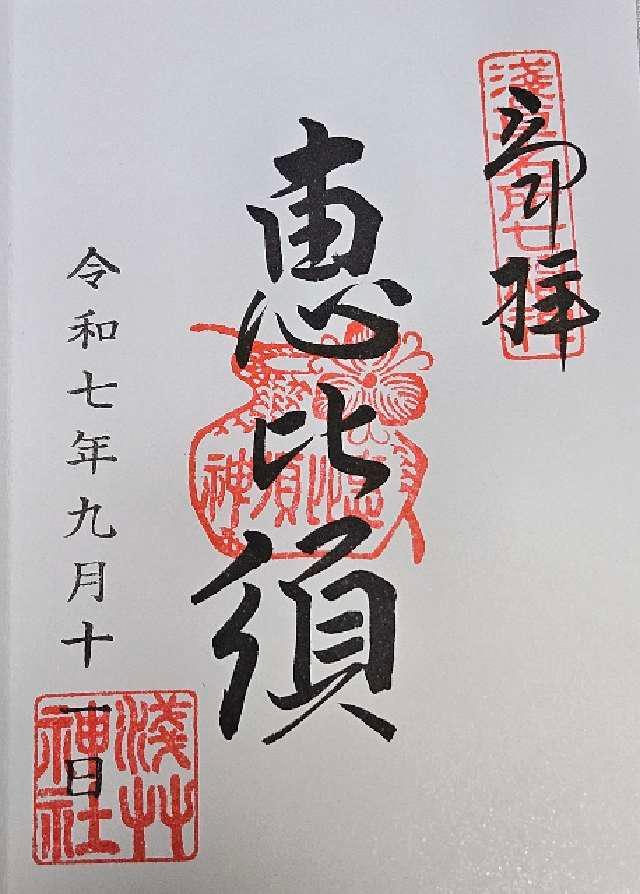 奉拝
淺草名所七福神
恵比須
恵比須神
令和七年九月十一日
淺草神社